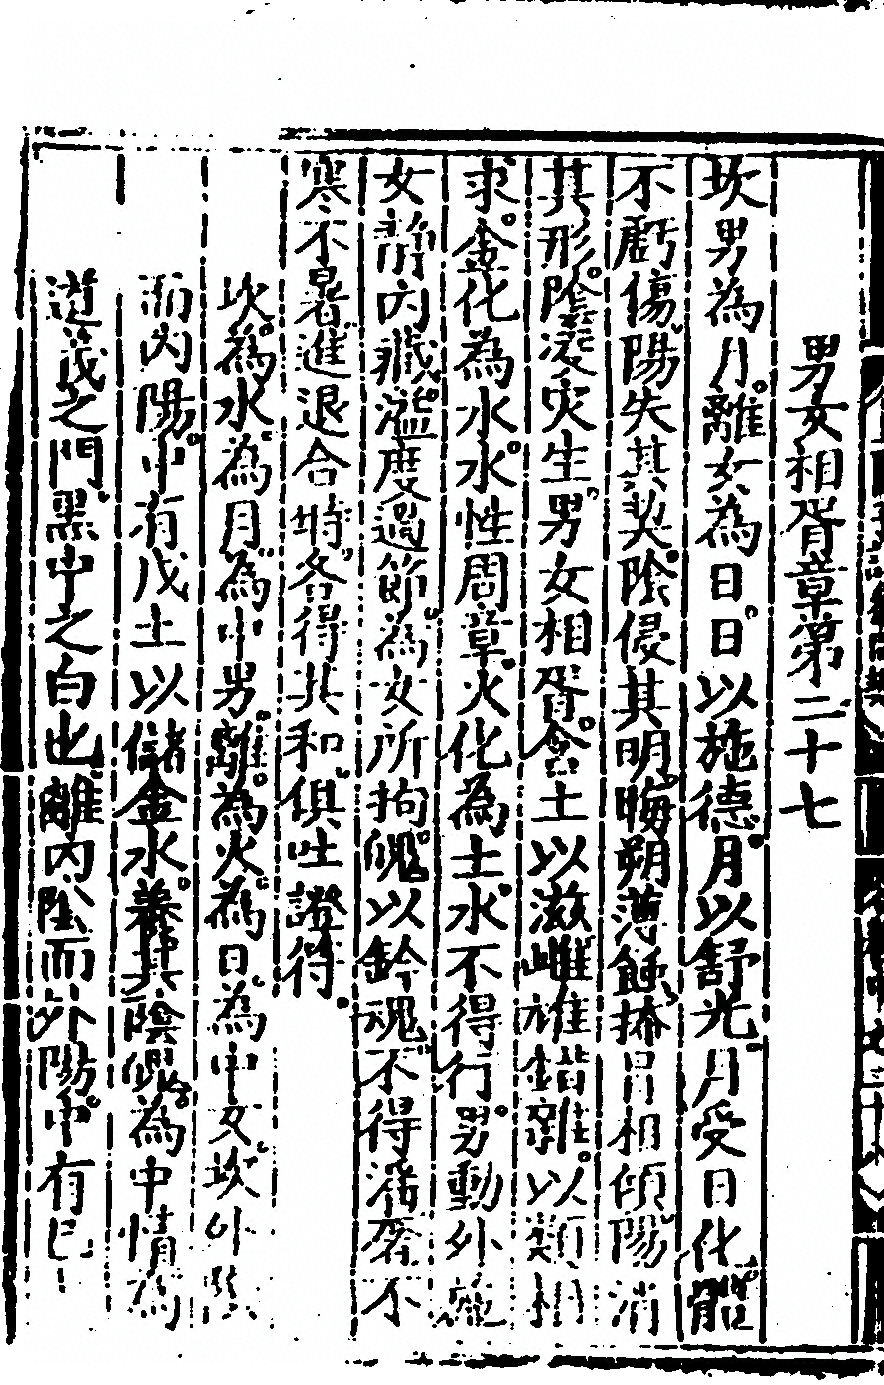 男女相胥章第二十七
坎男為月離女為日日以施德月以舒光月受日化體
不虧傷陽失其契陰侵其明晦朔薄蝕掩冒相傾陽消
其形陰凌灾生男女相胥含土以滋雌雄錯雜以類相
求金化為水水性周章火化為土水不得行男動外施
女靜內藏溢度過節為女所拘魄以鈐魂不得淫奢不
寒不暑進退合時各得其和俱吐證符
坎為水為月為中男離為火為日為中女坎外陰
而內陽中有戊土以儲金水養其陰魄為中情為
道茂之門黑中之白也離內陰而外陽中有巳